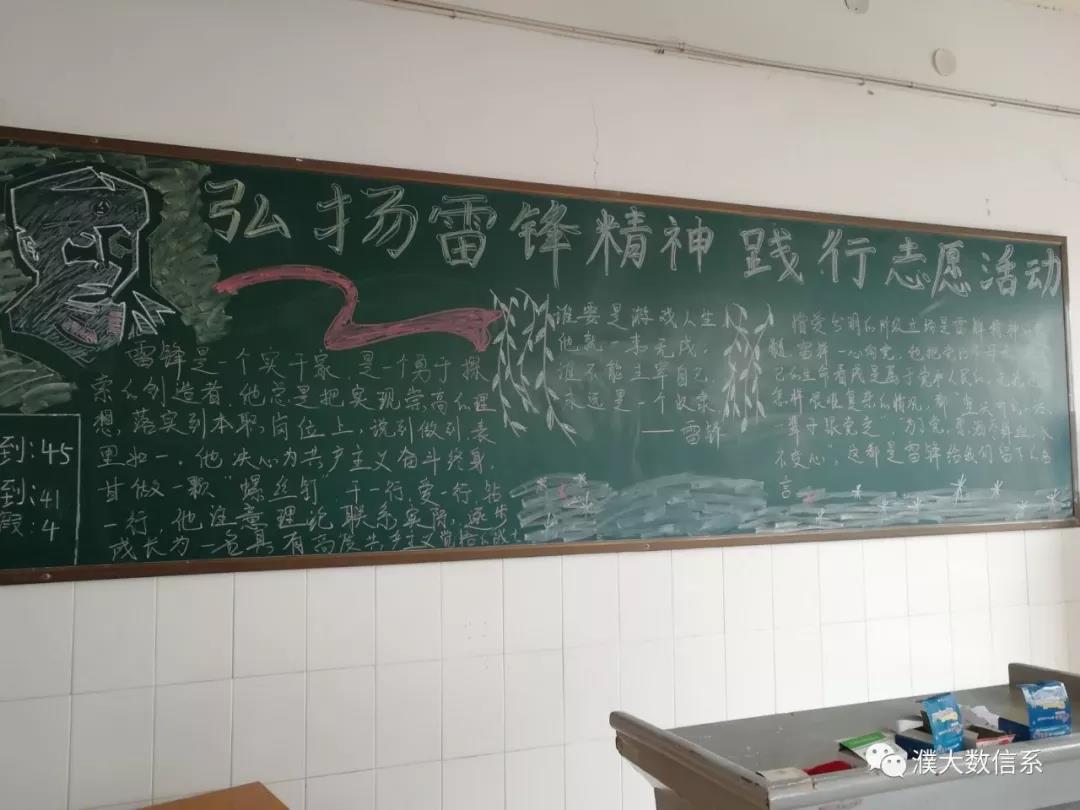 弘扬雷锋精神 践行志愿活动
雷锋是一个实干家,是一个勇于探
索的创造者,他总是把实现崇高的理
想,落实到本职岗位上,说到做到,表
里如一。他决心为共产主义奋斗终身,
甘做一颗“螺丝钉”干一行,爱一行,钻
一行,他注意理论联系实际,逐步
成长为一名具有高度共产主义
谁要是游戏人生
他就一事无成,
谁不能主宰自己,
永远是一个奴隶
——雷锋
憎爱分明的阶级立场是雷锋精神
髓,雷锋一心向党,他把
己的生命看成是属于党和人民的,无论
怎样艰难复杂的情况,都“坚
一辈子跟党走”,为了党,
不变心,这都是雷锋给我们留下的
言
到:45
到:41
假:4
濮大数信系